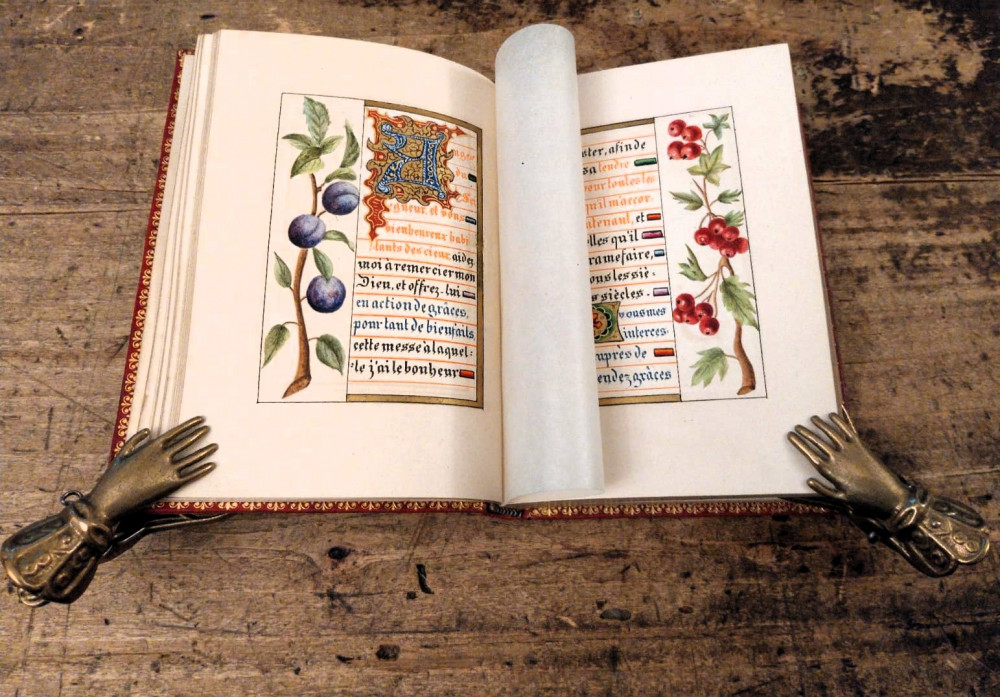 Anges
du
Sei
gneur, et vous
bienheureux habi
tants des cieux, aidez
moi à remercier mon
Dieu, et offrez-lui
en action de grâces,
pour tant de bienfaits,
cette messe à laquel-
le j'ai le bonheur
ster, afin de
sa tendre
pour toutes les
qu'il m'accor
tenant, et
lles qu'il
ra me faire,
ous les siè-
s siècles.
vous mes
interces-
uprès de
endez grâces